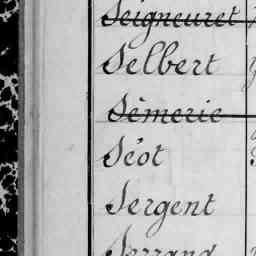 Seigneuret
Selbert
Sémerie
Séot
Sergent
Serrand